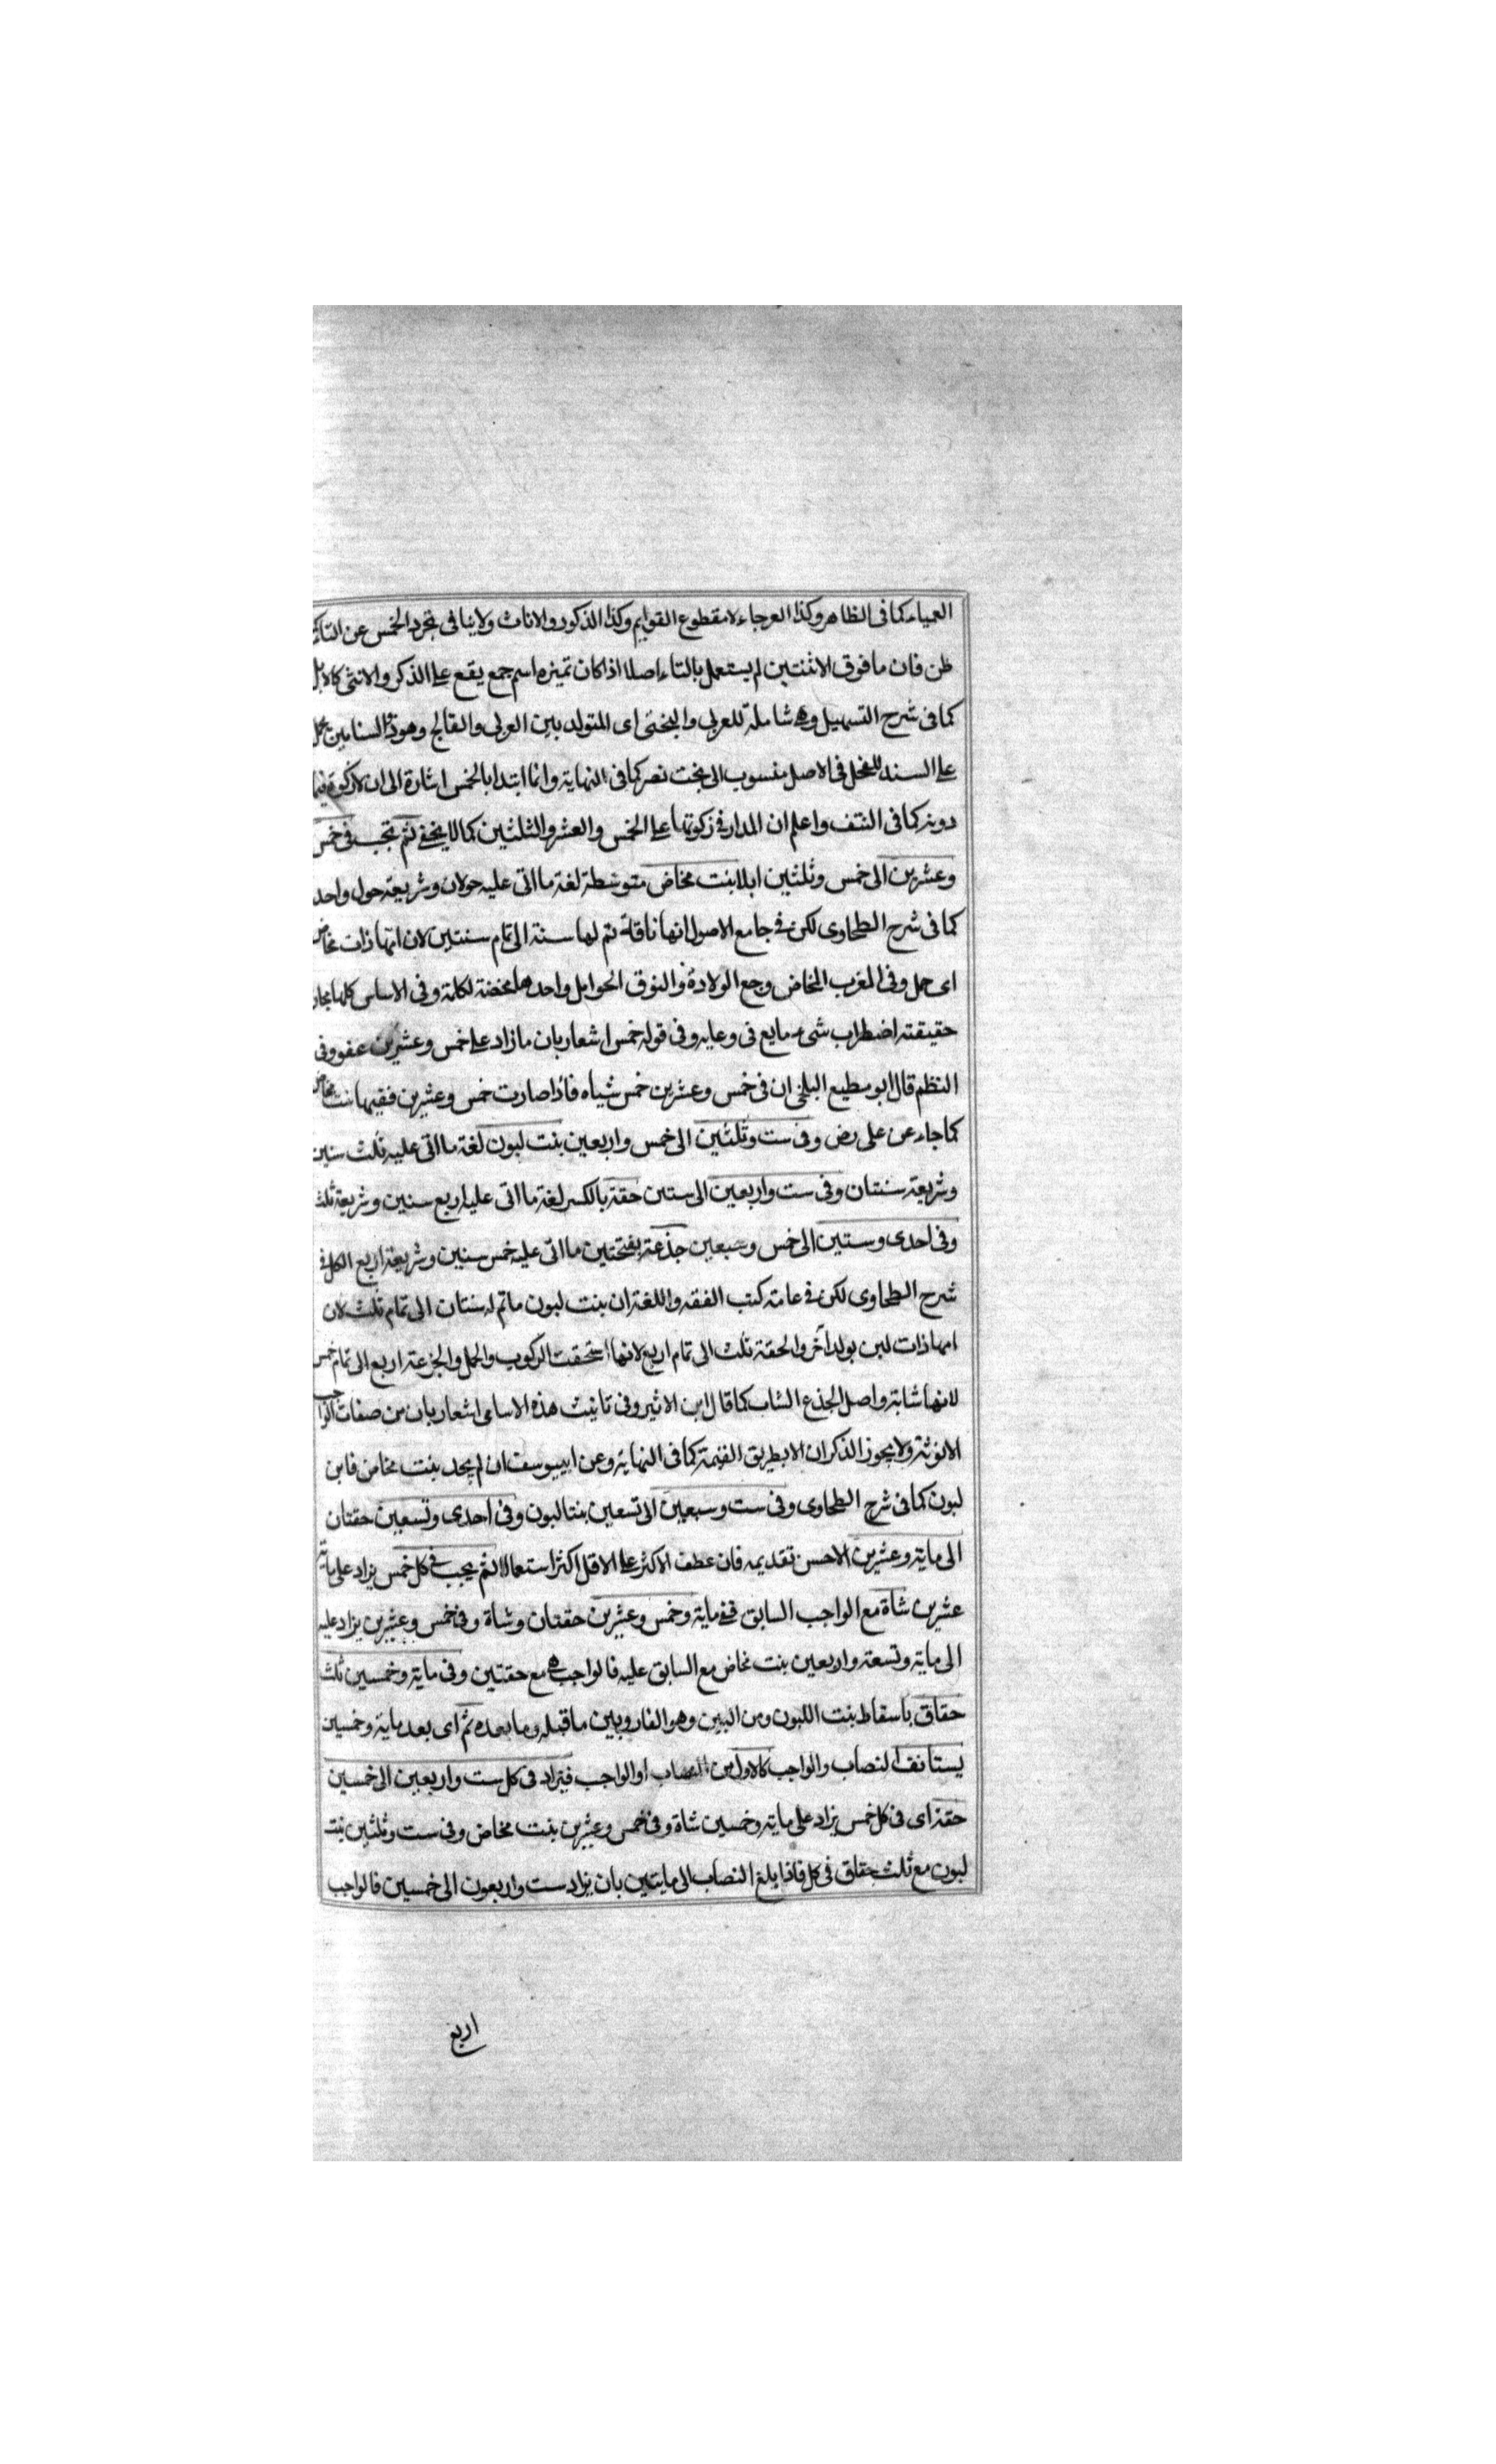 العمياء كما فى الظاهر وكذا العرجاء لا مقطوع القوايم وكذا الذكور والاناث ولا ينافى تجرد الخمس عن التاء
ظن فان ما فوق الاثنتين لم يستعمل بالتاء اصلا اذا كان تميزه اسم جمع يقع على الذكر والانثى كالابل
كما فى شرح التسهيل وهى شاملة للعربى والبختى اى المتولد بين العربى والفالج وهو ذو السنامين
على السند للفحل فى الاصل منسوب الى بخت نصر كما فى النهاية وانما ابتدا بالخمس اشارة الى ان لا زكوة فيما
دونه كما فى النتف واعلم ان المدار فى زكوتها على الخمس والعشر والثلثين كما لا يخفى ثم تجب فى خمس
وعشرين الى خمس وثلثين ابلا بنت مخاض متوسطة لغة ما اتى عليه حولان وشريعة حول واحد
كما فى شرح الطحاوى لكن فى جامع الاصول انها ناقة تم لها سنة الى تمام سنتين لان امها ذات مخاض
اى حمل وفى المغرب المخاض وجع الولادة والنوق الحوامل واحدها مخضة لكلمة وفى الاساس كلها مجاز
حقيقته اضطراب شىء مايع فى وعايه وفى قوله خمس اشعار بان ما زاد على خمس وعشرين عفو وفى
النظم قال ابو مطيع البلخى ان فى خمس وعشرين خمس شياه فاذا صارت خمس وعشرين ففيها بنت مخاض
كما جاء عن على رض وفى ست وثلثين الى خمس واربعين بنت لبون لغة ما اتى عليه ثلث سنين
وشريعة سنتان وفى ست واربعين الى ستين حقة بالكسر لغة ما اتى عليه اربع سنين وشريعة ثلث
وفى احدى وستين الى خمس وسبعين جذعة بفتحتين ما اتى عليه خمس سنين وشريعة اربع الكل فى
شرح الطحاوى لكن فى عامة كتب الفقه واللغة ان بنت لبون ما تم له سنتان الى تمام ثلث لان
امها ذات لبن بولد آخر والحقة ثلث الى تمام اربع لانها استحقت الركوب والحمل والجزعة اربع الى تمام خمس
لانها شابة واصل الجذع الشاب كما قال ابن الاثير وفى تانيث هذه الاسامى اشعار بان من صفات الواجب
الانوثة ولا يجوز الذكران الا بطريق القيمة كما فى النهاية وعن ابييوسف ان لم يجد بنت مخاض فابن
لبون كما فى شرح الطحاوى وفى ست وسبعين الى تسعين بنتا لبون وفى احدى وتسعين حقتان
الى ماية وعشرين الاحسن تقديمه فان عطف الاكثر على الاقل اكثر استعمالا ثم يجب فى كل خمس يزاد على ماية
عشرين شاة مع الواجب السابق ففى ماية وخمس وعشرين حقتان وشاة وفى خمس وعشرين يزاد عليه
الى ماية وتسعة واربعين بنت مخاض مع السابق عليه فالواجب هى مع حقتين وفى ماية وخمسين ثلث
حقاق باسقاط بنت اللبون ومن البين وهو الفارق بين ما قبله وما بعده ثم اى بعد ماية وخمسين
يستانف النصاب والواجب كالاول من النصاب او الواجب فيزاد فى كل ست واربعين الى خمسين
حقة اى فى كل خمس يزاد على ماية وخمسين شاة وفى خمس وعشرين بنت مخاض وفى ست وثلثين بنت
لبون مع ثلث حقاق فى كل فاذا بلغ النصاب الى مايتين بان يزاد ست واربعون الى خمسين فالواجب
اربع